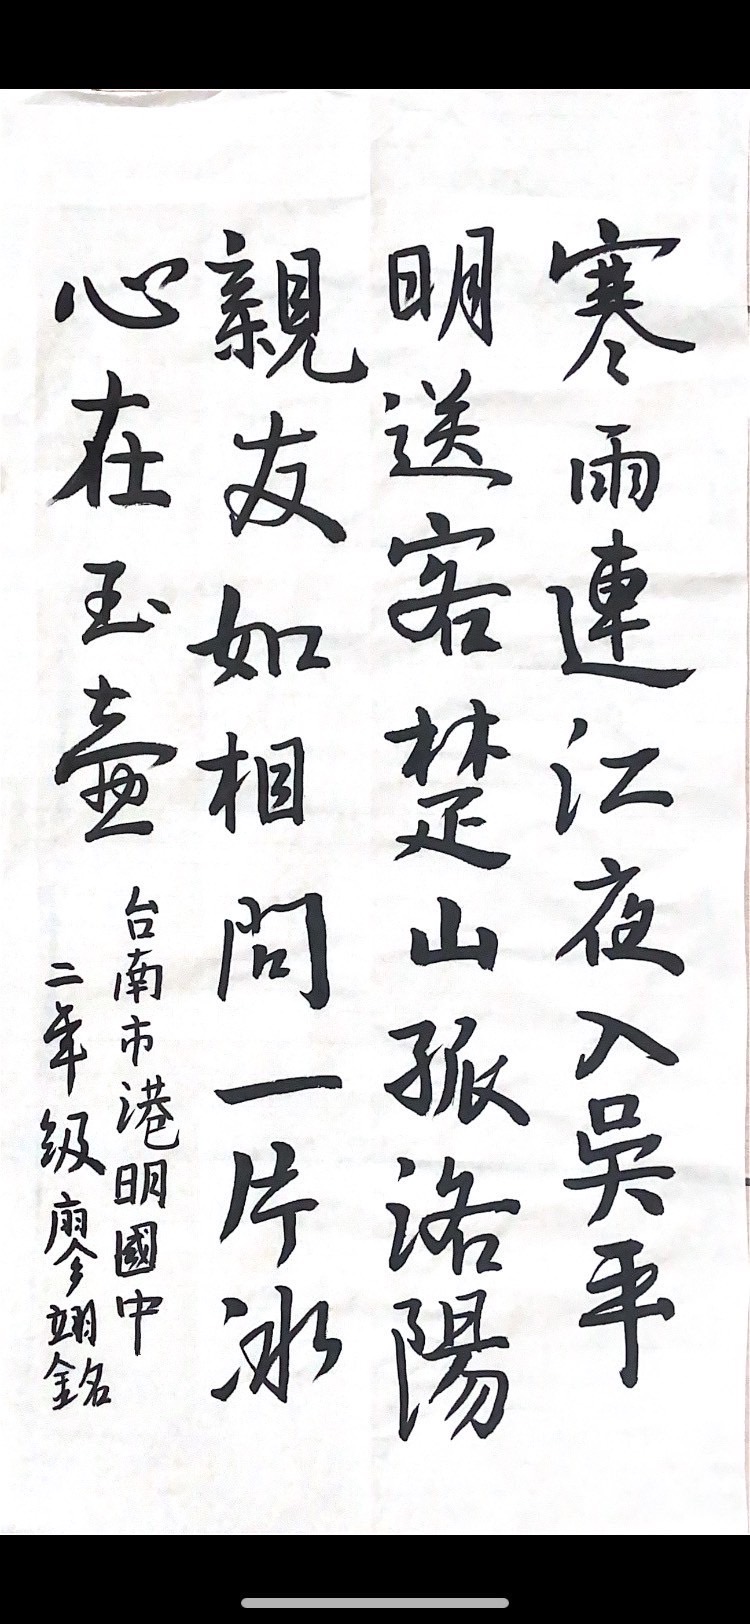 寒雨連江夜入吳平
明送客楚山孤洛陽
親友如相問一片冰
心在玉壺
台南市港明國中
二年級廖翊銘